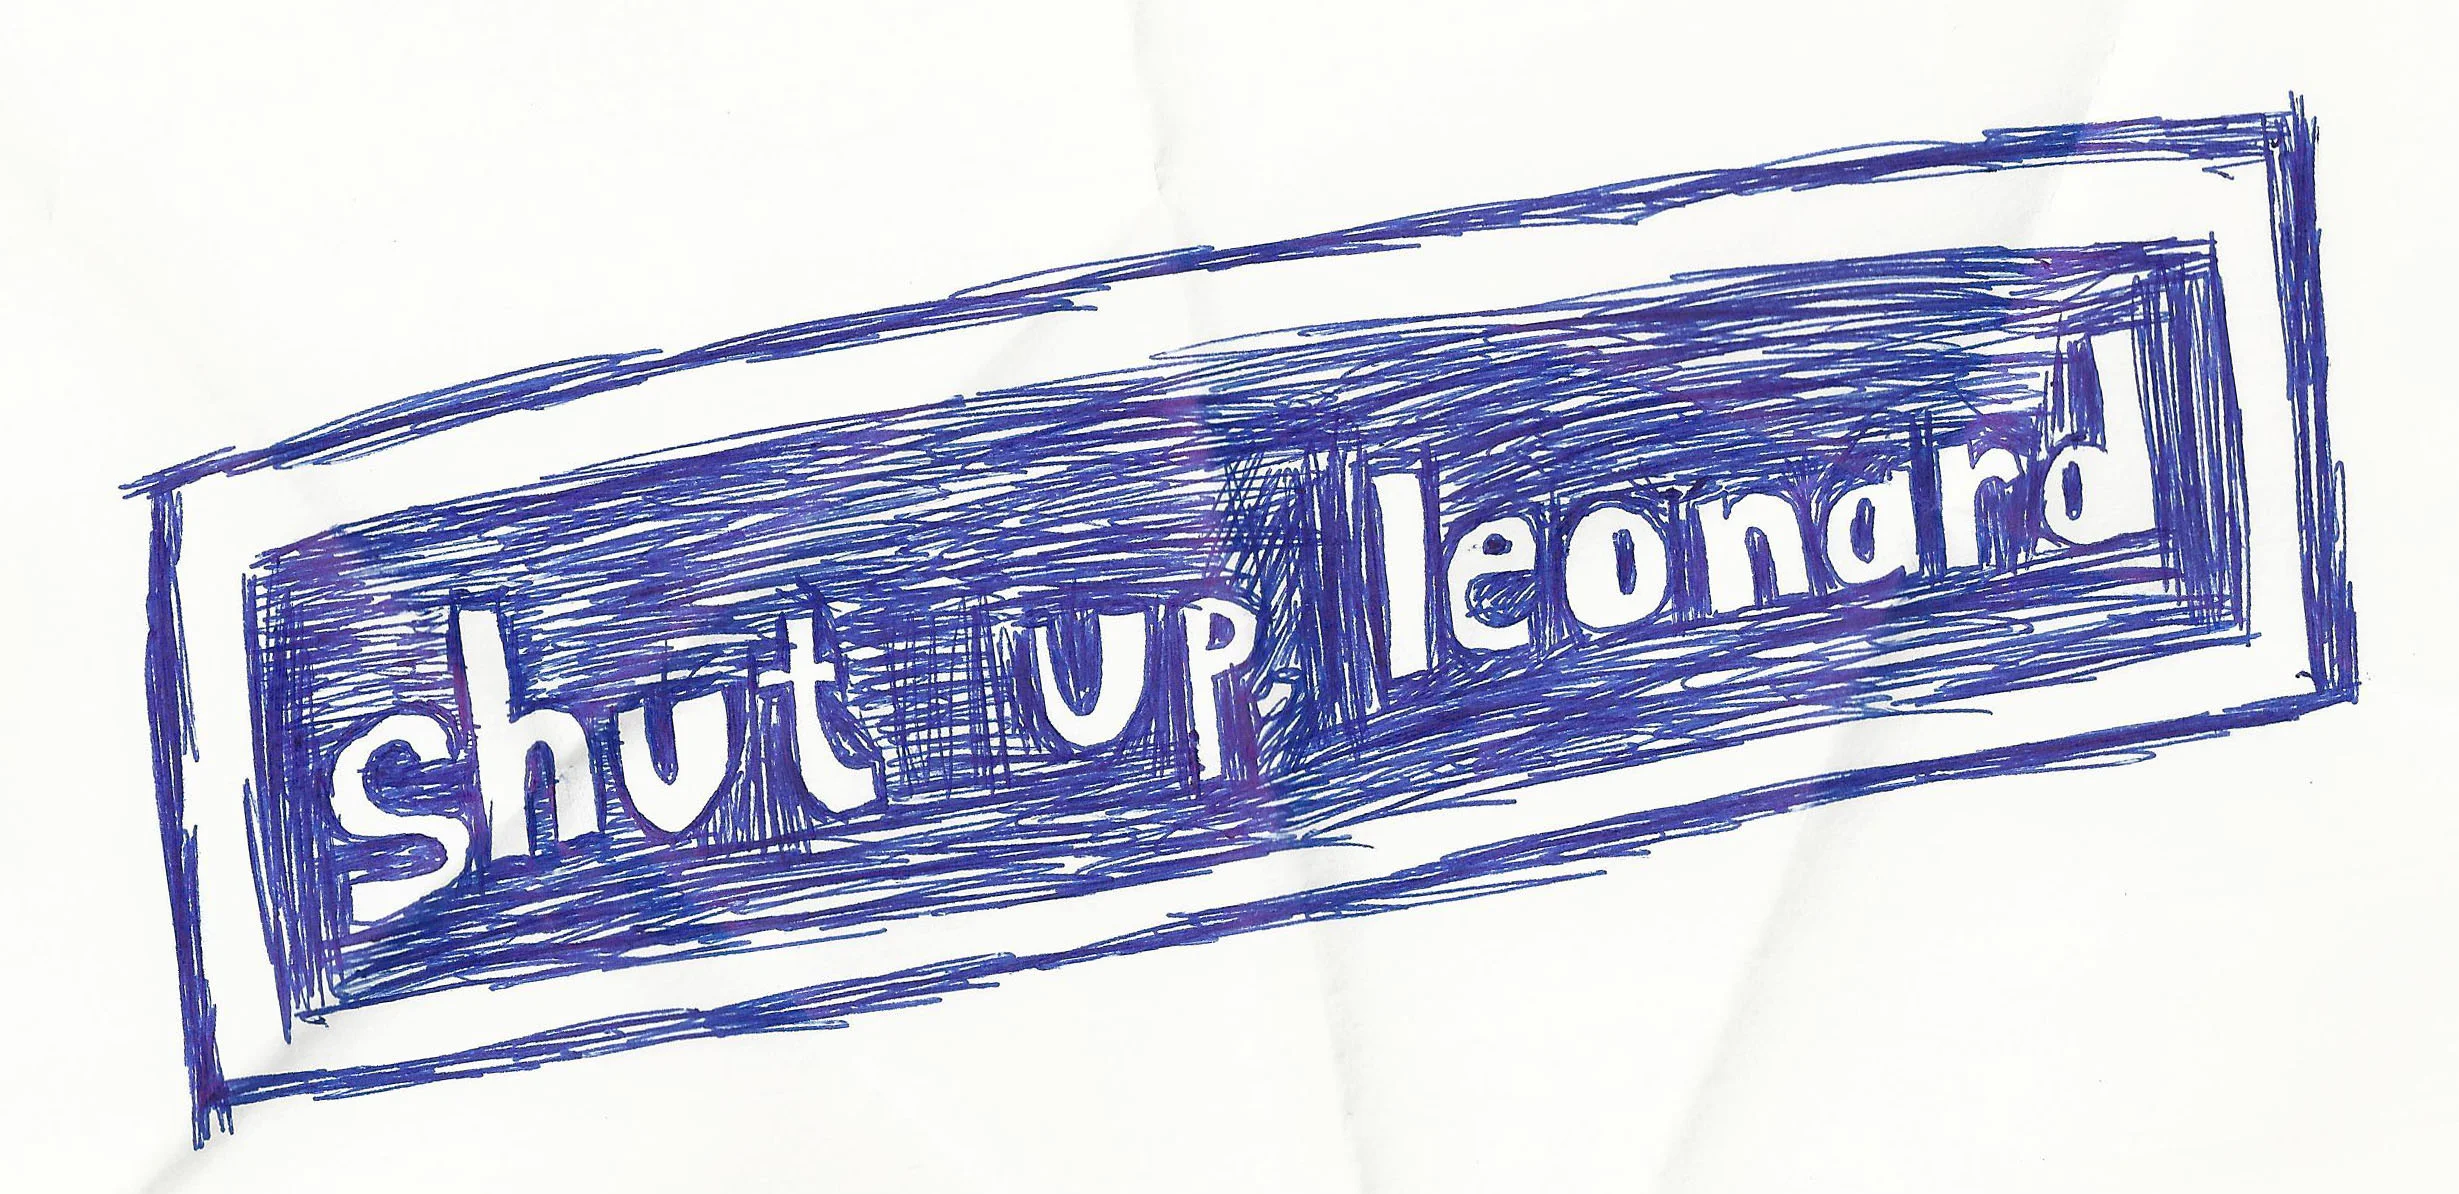 Shut up, leonard